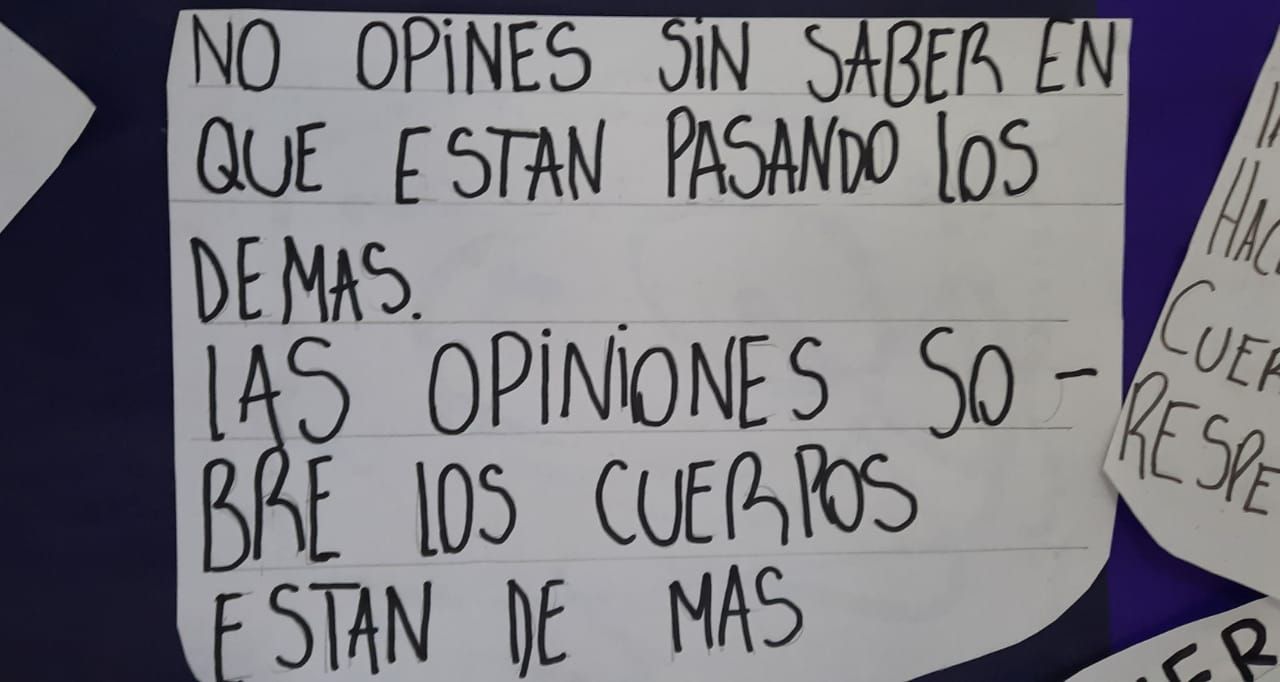 NO OPiNES SiN SABER EN
QUE ESTAN PASANDO LOS
DEMAS.
LAS OPiNiONES SO-
BRE LOS CUERPOS
ESTAN DE MAS